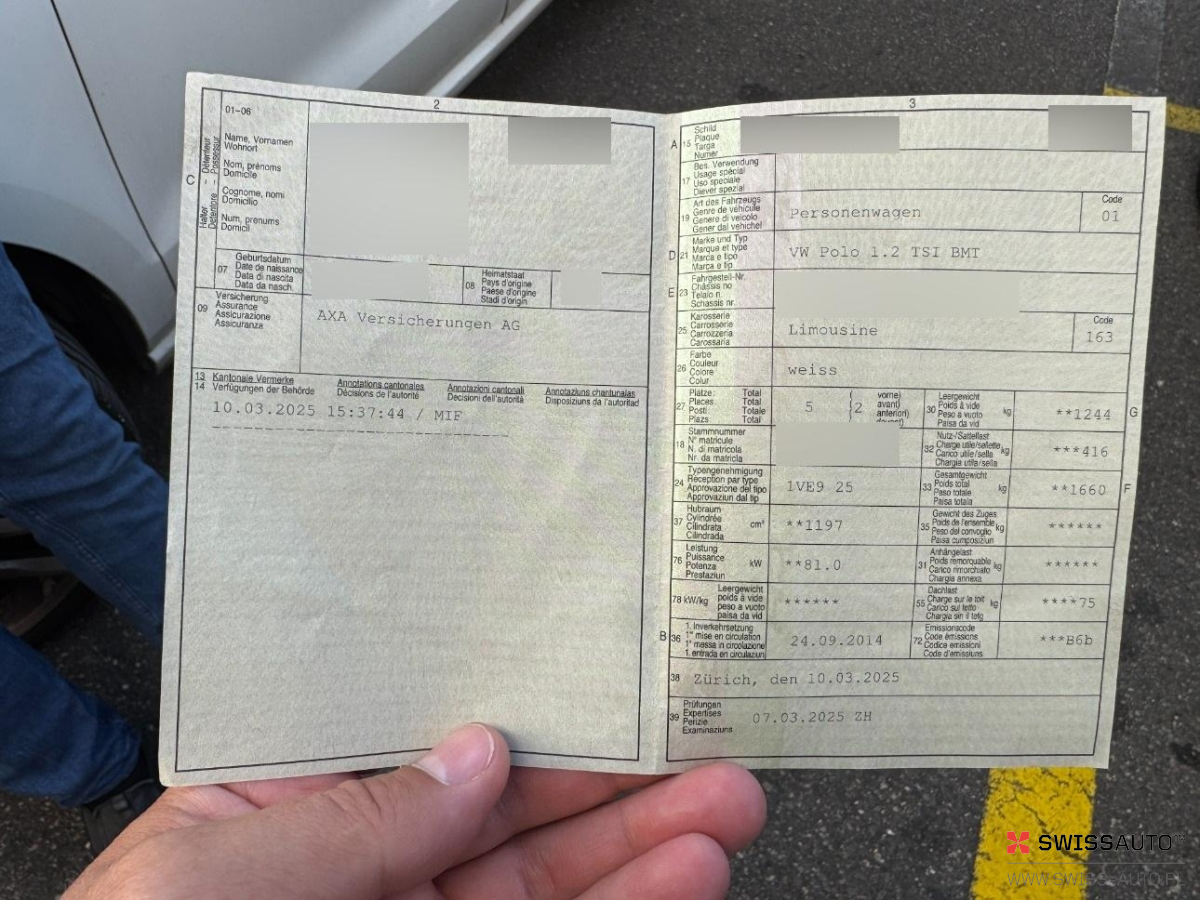 2
01-06
C
Halter - Détenteur
Detentore - Possessur
Name, Vornamen
Wohnort
Nom, prénoms
Domicile
Cognome, nomi
Domicilio
Num, prenums
Domicil
07
Geburtsdatum
Date de naissance
Data di nascita
Data da nasch.
08
Heimatstaat
Pays d'origine
Paese d'origine
Stadi d'origin
09
Versicherung
Assurance
Assicurazione
Assicuranza
AXA Versicherungen AG
13 Kantonale Vermerke Annotations cantonales Annotazioni cantonali Annotaziuns chantunalas
14 Verfügungen der Behörde Décisions de l'autorité Decisioni dell'autorità Disposiziuns da l'autoritad
10.03.2025 15:37:44 / MIF
3
A 15
Schild
Plaque
Targa
Numer
17
Bes. Verwendung
Usage spécial
Uso speciale
Diever spezial
19
Art des Fahrzeugs
Genre de véhicule
Genere di veicolo
Gener dal vehichel
Personenwagen
Code
01
D 21
Marke und Typ
Marque et type
Marca e tipo
Marca e tip
VW Polo 1.2 TSI BMT
E 23
Fahrgestell-Nr.
Châssis no
Telaio n.
Schassis nr.
25
Karosserie
Carrosserie
Carrozzeria
Carossaria
Limousine
Code
163
26
Farbe
Couleur
Colore
Colur
weiss
27
Plätze: Total
Places: Total
Posti: Totale
Plazs: Total
5 (2 vorne)
avant)
anteriori)
30
Leergewicht
Poids à vide
Peso a vuoto
Paisa da vid
kg
**1244
G
18
Stammnummer
N° matricule
N. di matricola
Nr. da matricla
32
Nutz-/Sattellast
Charge utile/sellette
Carico utile/sella
Chargia utila/sella
kg
***416
24
Typengenehmigung
Réception par type
Approvazione del tipo
Approvaziun dal tip
1VE9 25
33
Gesamtgewicht
Poids total
Peso totale
Paisa totala
kg
**1660
F
37
Hubraum
Cylindrée
Cilindrata
Cilindrada
cm³
**1197
35
Gewicht des Zuges
Poids de l'ensemble
Peso del convoglio
Paisa cumposiziun
kg
******
76
Leistung
Puissance
Potenza
Prestaziun
kW
**81.0
31
Anhängelast
Poids remorquable
Carico rimorchiato
Chargia annexa
kg
******
78 kW/kg
Leergewicht
poids à vide
peso a vuoto
paisa da vid
******
55
Dachlast
Charge sur le toit
Carico sul tetto
Chargia sin il tetg
kg
****75
B 36
1. Inverkehrsetzung
1re mise en circulation
1a messa in circolazione
1. entrada en circulaziun
24.09.2014
72
Emissionscode
Code émissions
Codice emissioni
Code d'emissiuns
***B6b
38
Zürich, den 10.03.2025
39
Prüfungen
Expertises
Perizie
Examinaziuns
07.03.2025 ZH
SWISSAUTO
WWW.SWISS-AUTO.PL